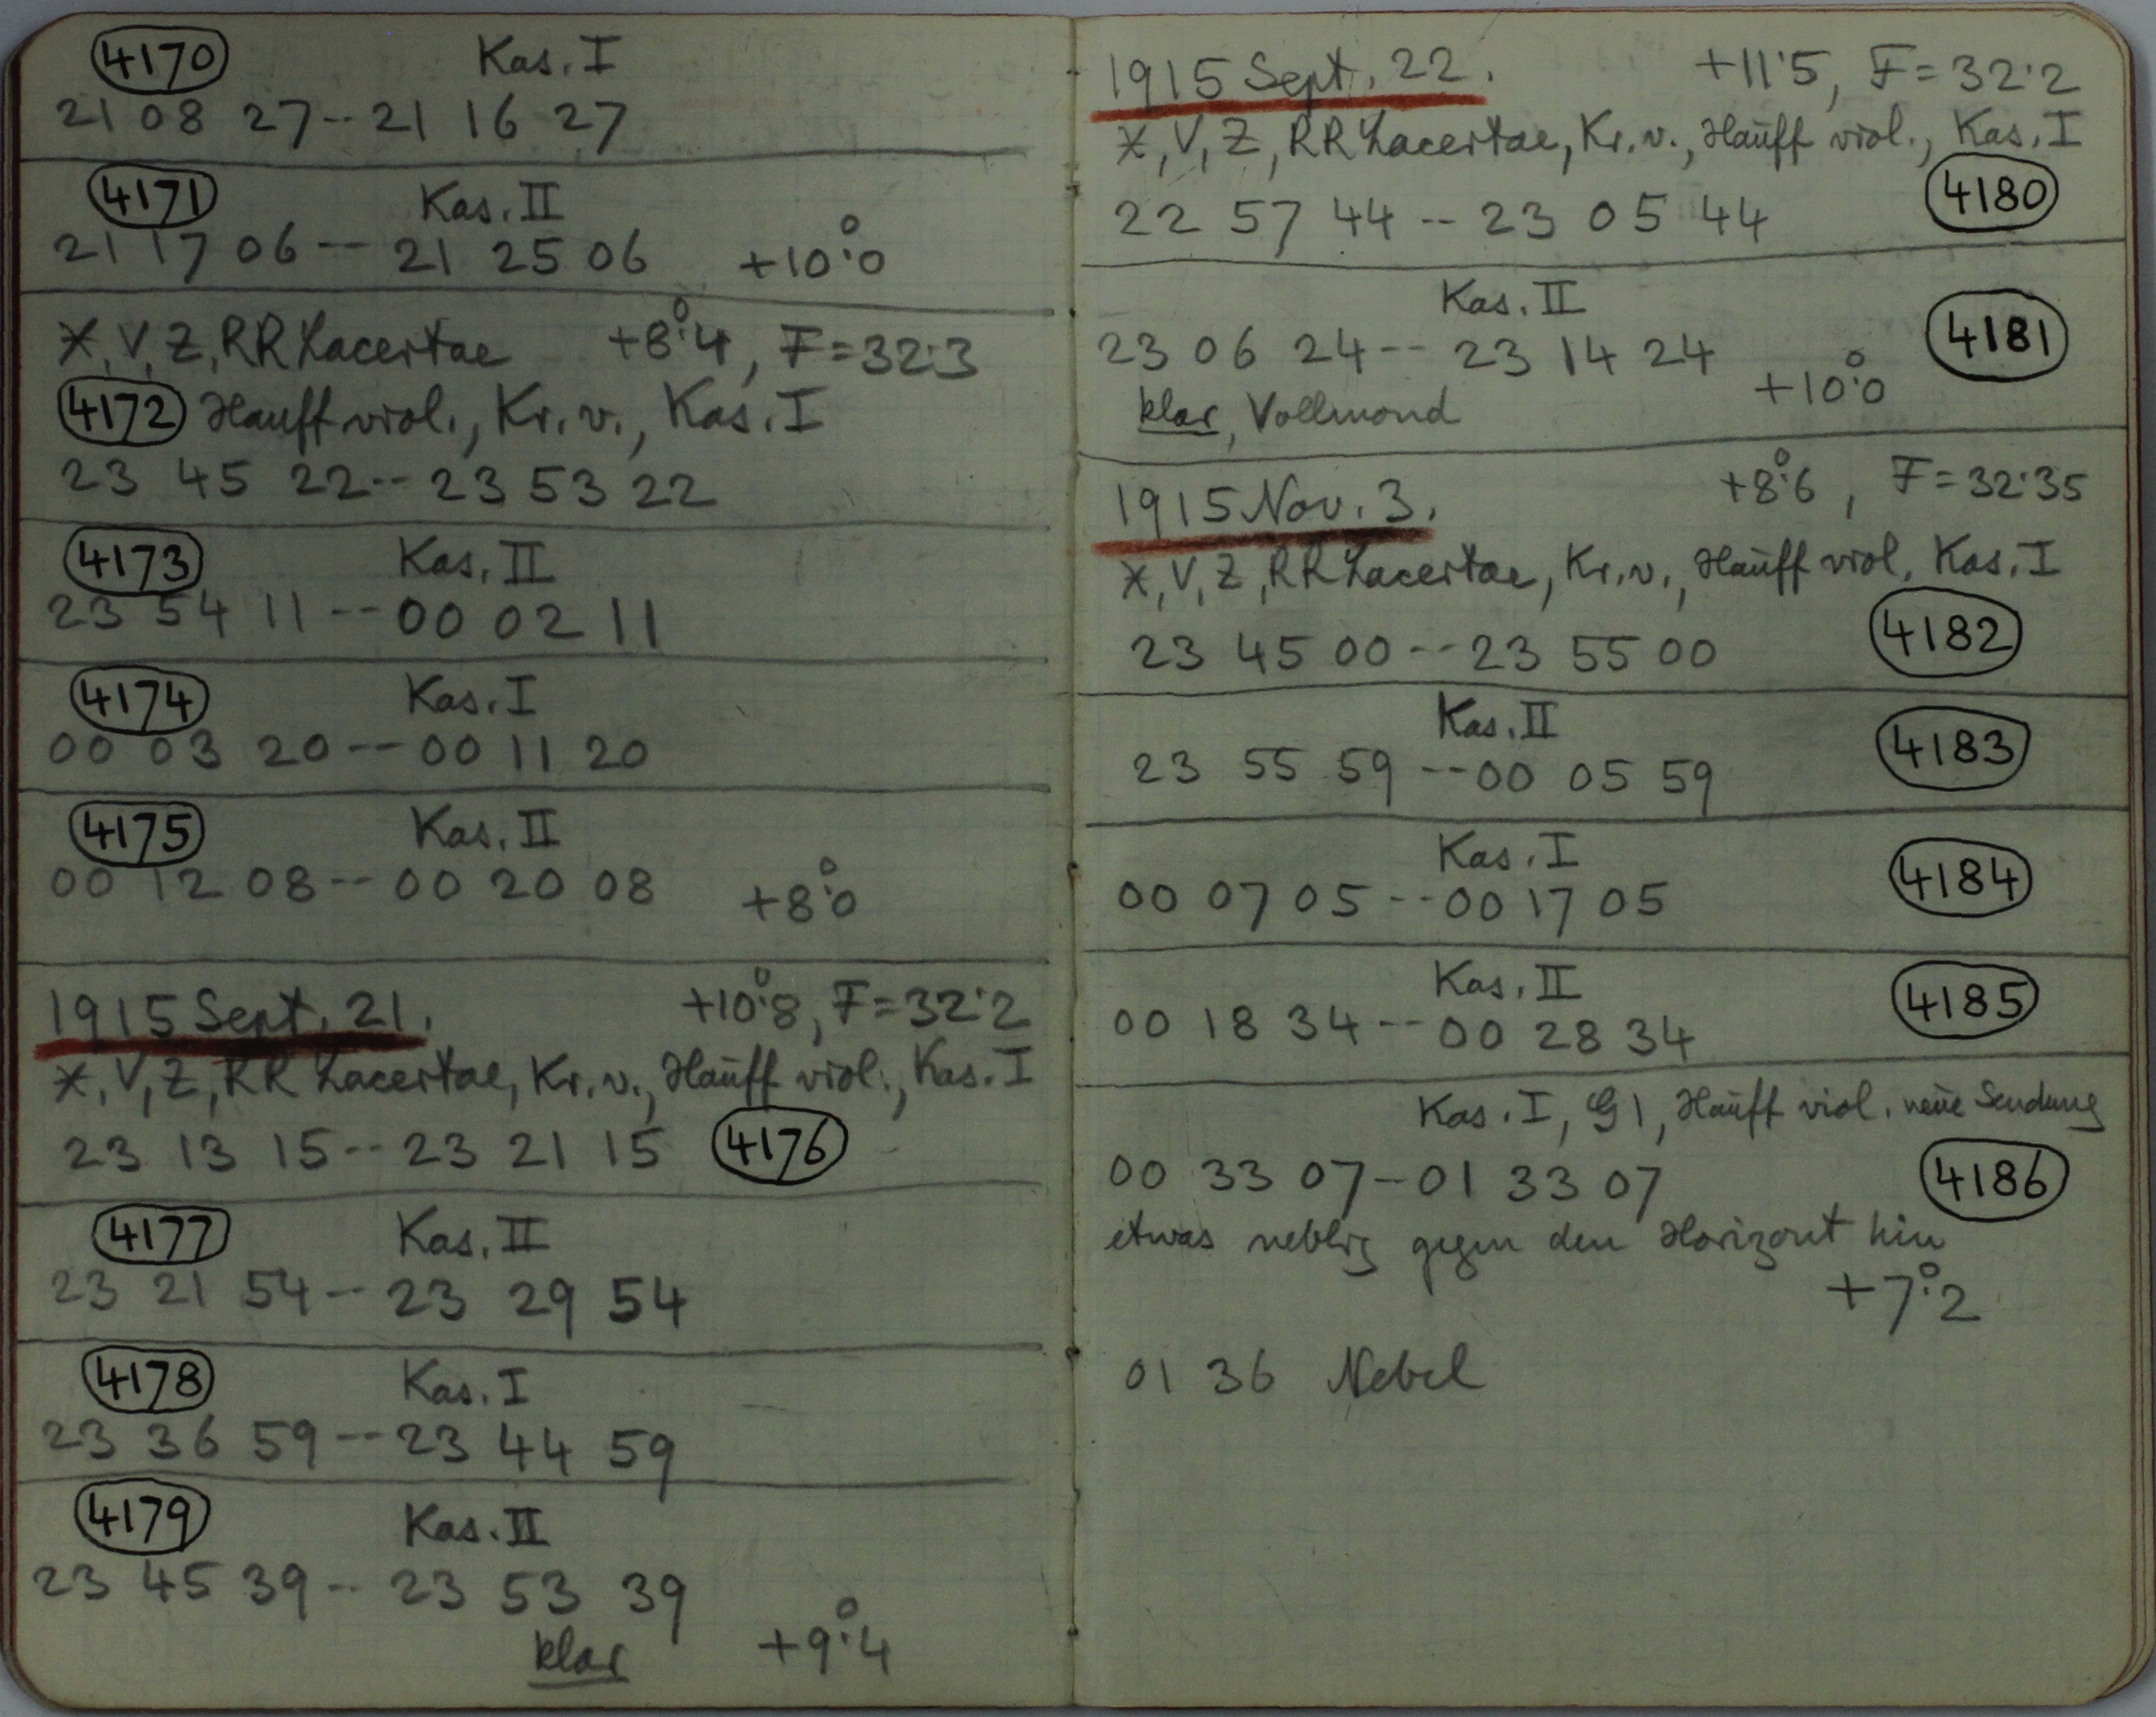 4170 Kas. I
21 08 27 -- 21 16 27
4171 Kas. II
21 17 06 -- 21 25 06 +10°.0
X, V, Z, RR Lacertae +8°.4, F=32.3
4172 Hauff viol., Kr. v., Kas. I
23 45 22 -- 23 53 22
4173 Kas. II
23 54 11 -- 00 02 11
4174 Kas. I
00 03 20 -- 00 11 20
4175 Kas. II
00 12 08 -- 00 20 08 +8°.0
1915 Sept. 21. +10°.8, F=32.2
X, V, Z, RR Lacertae, Kr. v., Hauff viol., Kas. I
23 13 15 -- 23 21 15 4176
4177 Kas. II
23 21 54 -- 23 29 54
4178 Kas. I
23 36 59 -- 23 44 59
4179 Kas. II
23 45 39 -- 23 53 39
klar +9°.4
1915 Sept. 22. +11.5, F=32.2
X, V, Z, RR Lacertae, Kr. v., Hauff viol., Kas. I
22 57 44 -- 23 05 44 4180
Kas. II
23 06 24 -- 23 14 24 4181
klar, Vollmond +10°.0
1915 Nov. 3. +8°.6, F=32.35
X, V, Z, RR Lacertae, Kr. v., Hauff viol. Kas. I
23 45 00 -- 23 55 00 4182
Kas. II
23 55 59 -- 00 05 59 4183
Kas. I
00 07 05 -- 00 17 05 4184
Kas. II
00 18 34 -- 00 28 34 4185
Kas. I, G1, Hauff viol. neue Sendung
00 33 07 -- 01 33 07 4186
etwas neblig gegen den Horizont hin
+7°.2
01 36 Nebel